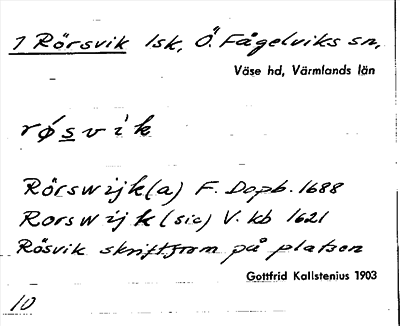 1 Rörsvik lsk, Ö. Fågelviks sn,
Väse hd, Värmlands län
røsvik
Rörswijk(a) F. Dopb. 1688
Rorswijk (sic) V. kb 1621
Rösvik skriftform på platsen
Gottfrid Kallstenius 1903
10